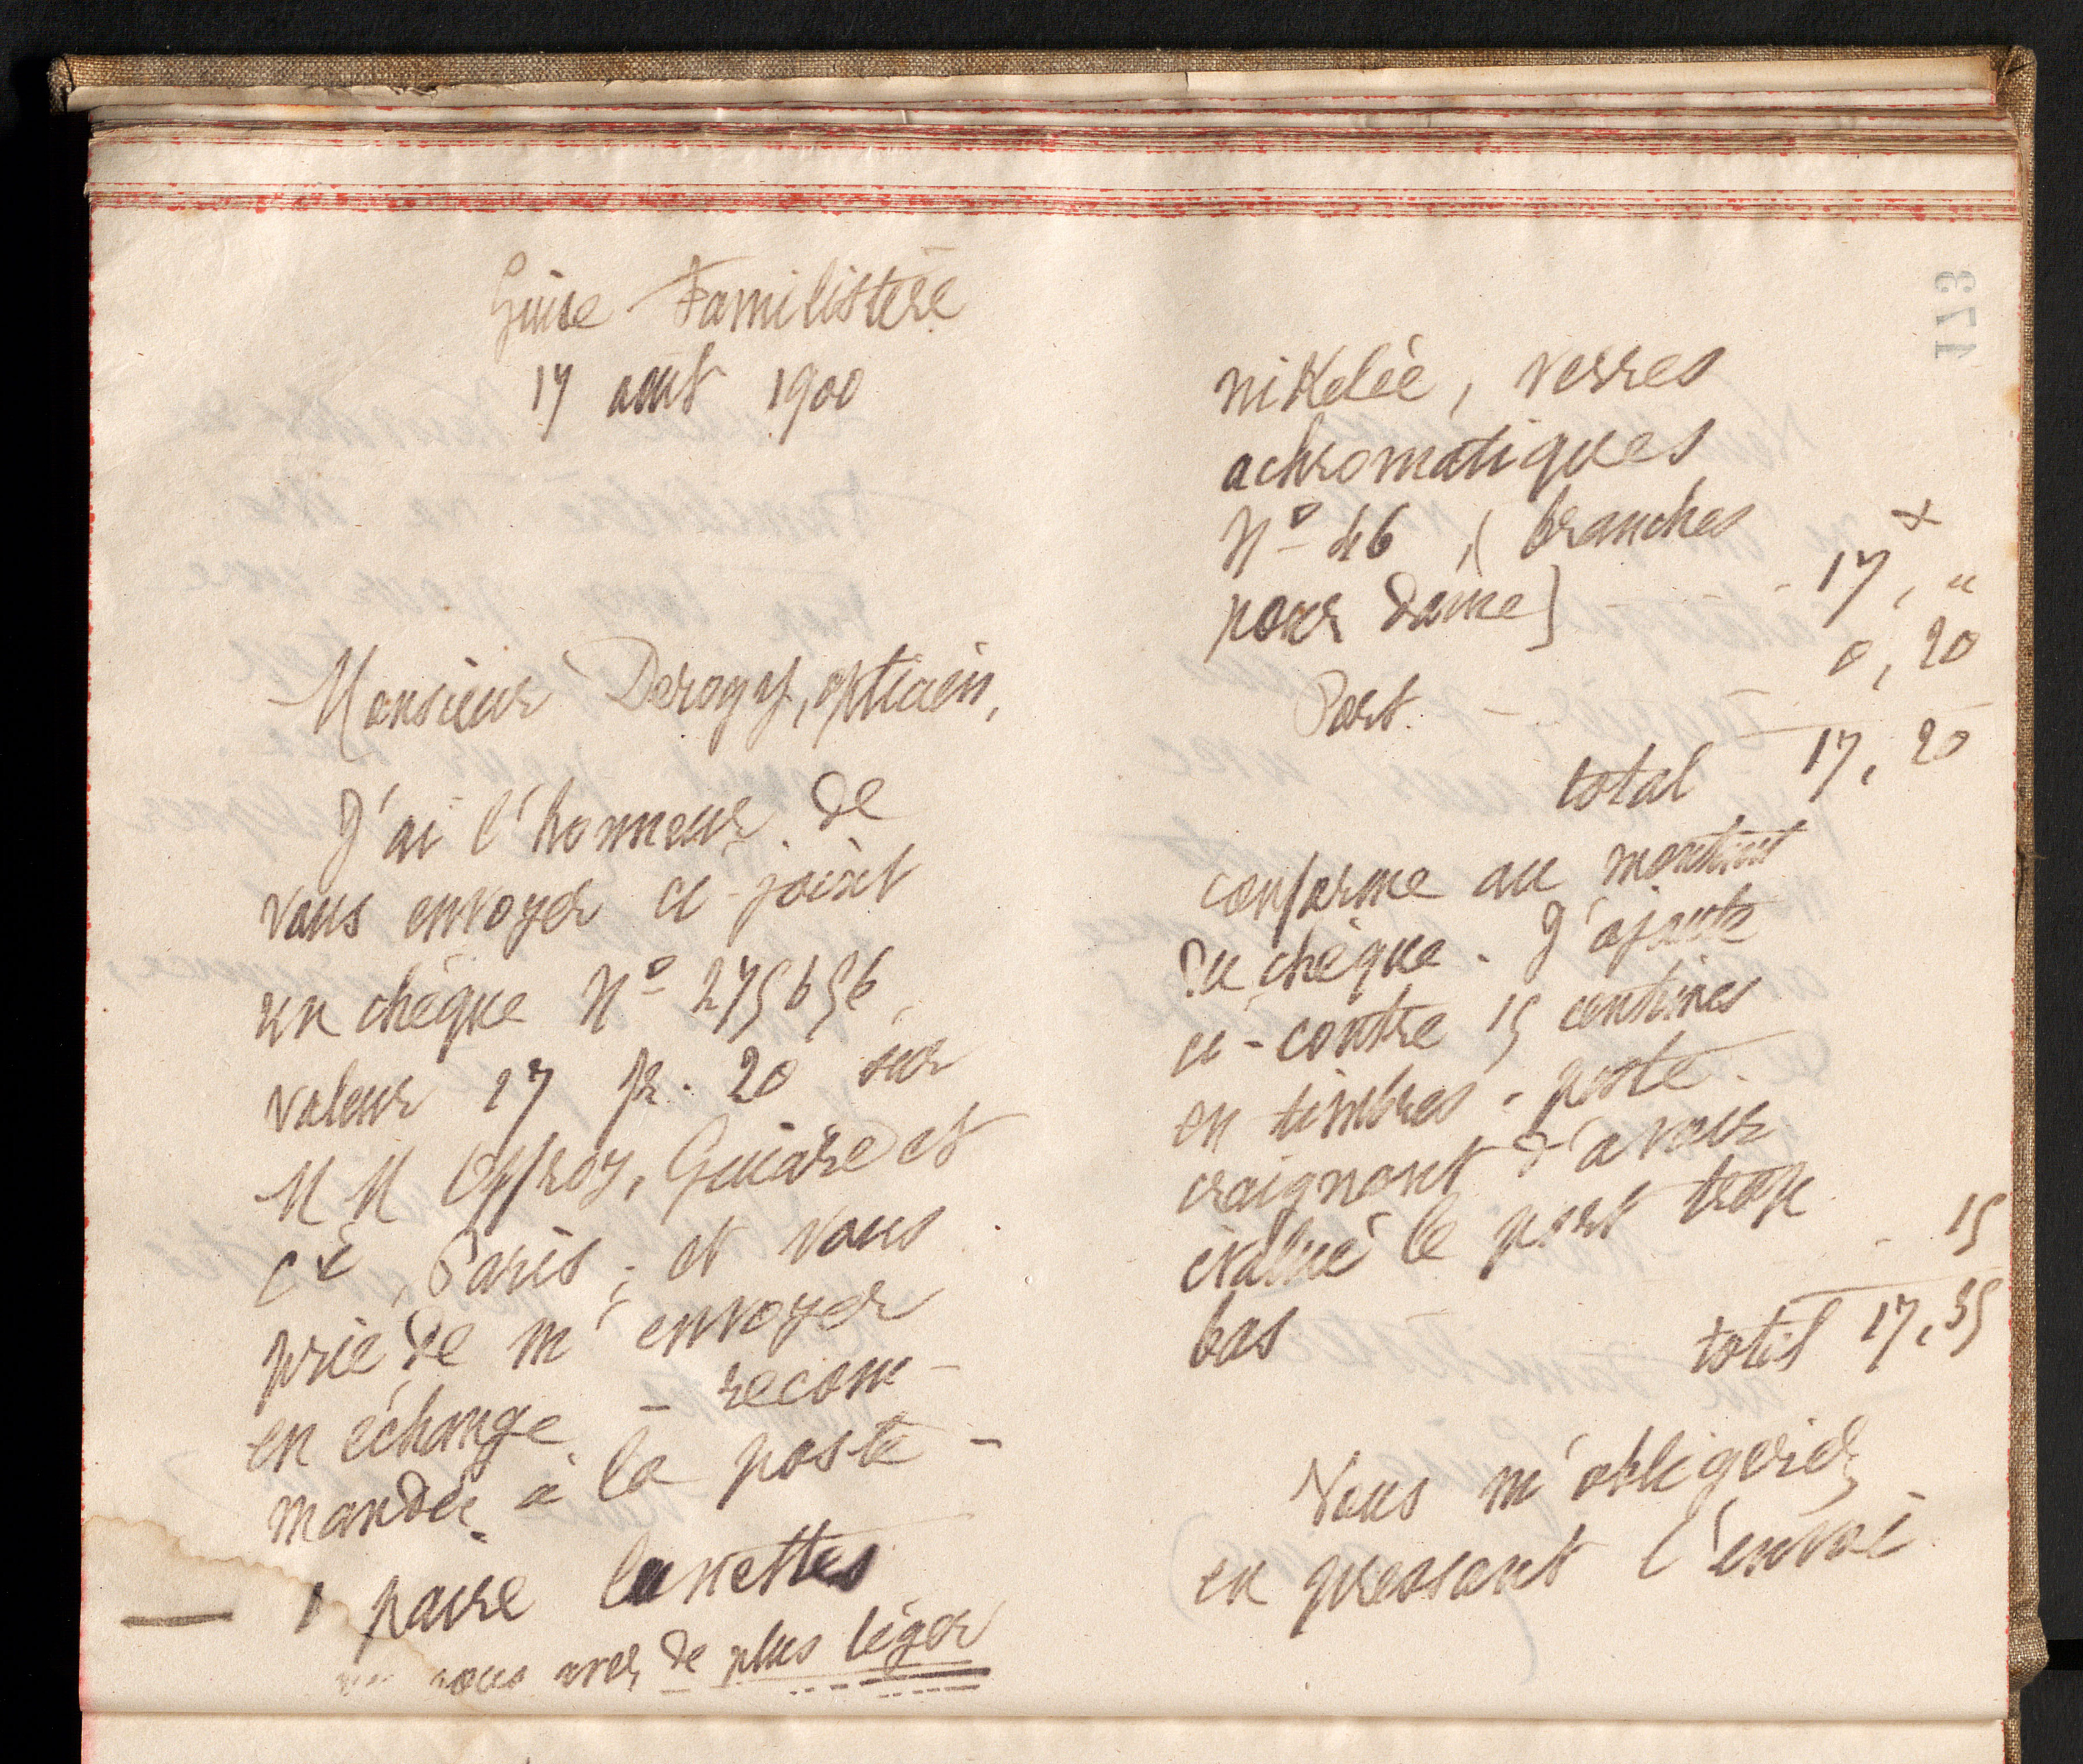 Guise Familistère
17 août 1900
Monsieur Derogy, opticien,
J'ai l'honneur de
vous envoyer ci-joint
un chèque Nº 275656,
valeur 17 fr. 20 sur
MM Offroy, Guiard et
Cie, Paris; et vous
prie de m'envoyer
en échange - recom-
mandée à la poste -
1 paire lunettes
vous avez de plus léger
173
nikelée, verres
achromatiques
Nº 46, (branches
pour dame) 17, "
Port. - 0,20
total 17,20
conforme au montant
du chèque. J'ajoute
ci-contre 15 centimes
en timbres-poste
craignant d'avoir
évalué le port trop
bas 15
total 17,35
Vous m'obligeriez
en pressant l'envoi